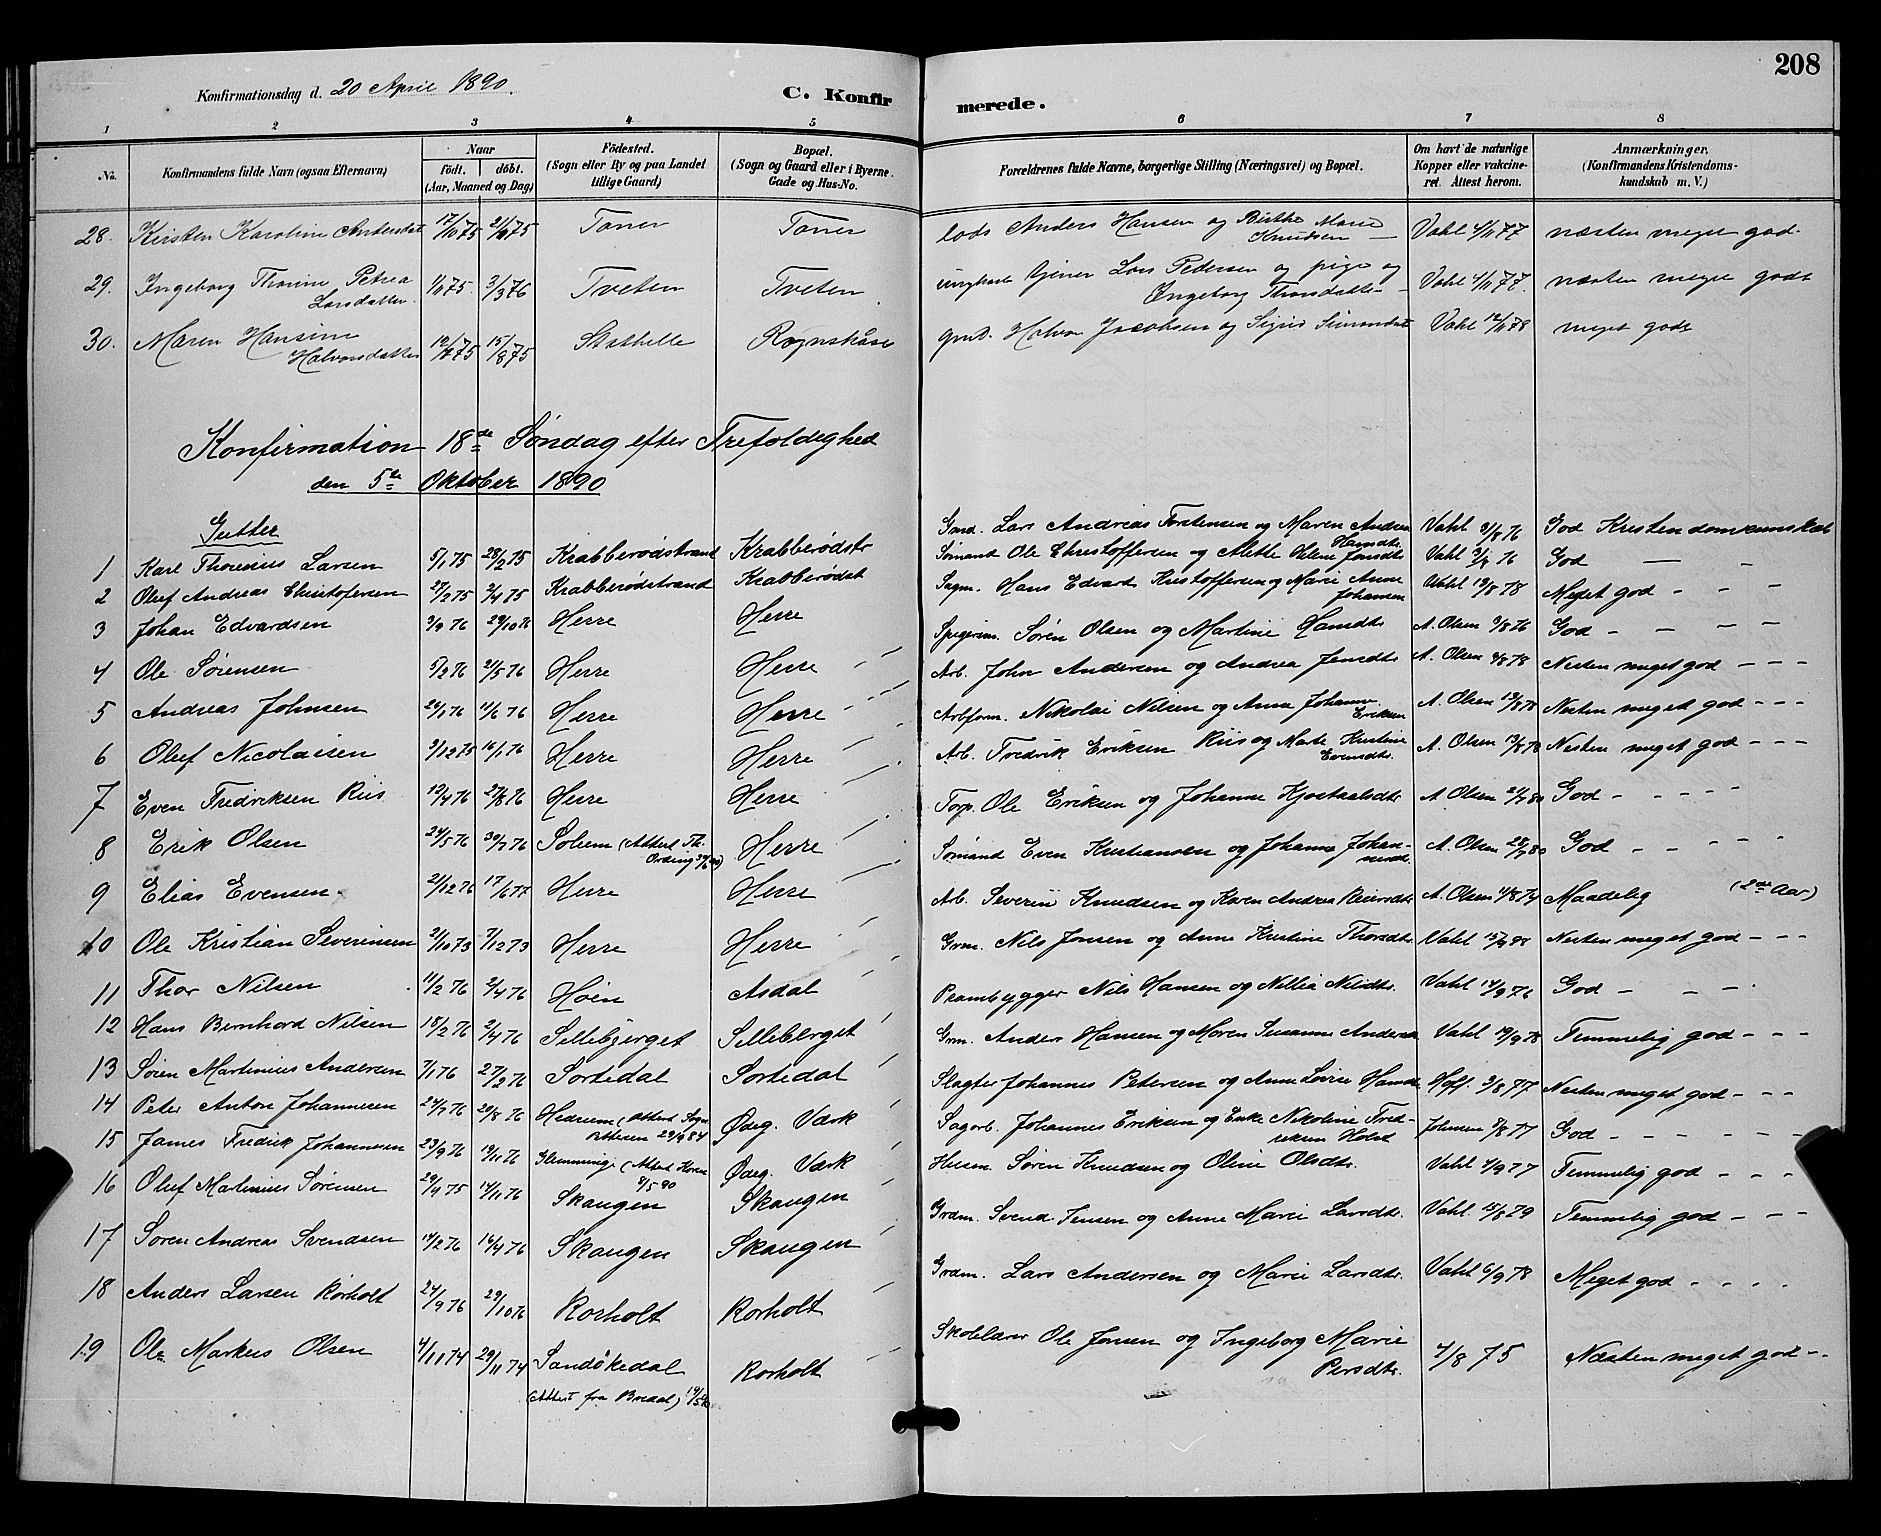 208
Konfirmationsdag d. 20 April 1890.
C. Konfirmerede.
1 2 3 4 5 6 7 8
No. Konfirmandens fulde Navn (ogsaa Efternavn) Naar født. døbt. (Aar, Maaned og Dag) Fødested. (Sogn eller By og paa Landet tillige Gaard) Bopæl. (Sogn og Gaard eller i Byerne Gade og Hus-No. Forældrenes fulde Navne, borgerlige Stilling (Næringsvei) og Bopæl. Om havt de naturlige Kopper eller vakcineret. Attest herom. Anmærkninger. (Konfirmandens Kristendomskundskab m. V.)
28. Kirsten Karoline Andersdat 17/10 75 Toner Toner Lods Anders Hansen og Birthe Marie Knudsen Vahl 4/11 77 næsten meget god.
29. Ingeborg Thorine Petrea Larsdatter 1/11 75 3/3 76 Tveten Tveten ungkarl Lars Pedersen og pige Ingeborg Vahl 4/11 77. næsten meget godt
30. Maren Hansine Halvorsdatter 12/7 75 15/8 75 Stathelle Rognskåse Grd. Halvor Jacobsen og Sigrid Simonsdat Vahl 12/11 78 meget godt
Konfirmation 18de Søndag efter Trefoldighed
den 5te Oktober 1890
Gutter
1 Karl Thorenius Larsen 5/1 75 28/2 75 Krabberødstrand Krabberødstr Gmd. Lars Andreas Torstensen og Maren Andrea Hansdtr. Vahl 3/8 76 God Kristendomskunskab
2 Oluf Andreas Christofersen 27/2 75 2/4 75 Krabberødstrand Krabberødst Sømand Ole Christoffersen og Mette Helene Jensdtr Vahl 3/8 76 God — -
3 Johan Edvardsen 3/9 76 29/10 76 Herre Herre Sagm. Hans Edvard Kristoffersen og Marie Anne Johansen Vahl 19/8 78 Meget god - - -
4 Ole Sørensen 5/2 76 21/5 76 Herre Herre Spigerm. Søren Olsen og Martine Hansdtr A. Olsen 3/8 76 God - - - -
5 Andreas Johnsen 26/1 76 11/6 76 Herre Herre Arb. John Andersen og Andrea Jensdtr A. Olsen 4/8 78 Nesten meget god - - -
6 Oluf Nicolaisen 3/12 75 16/1 76 Herre Herre Arbform. Nikolai Nilsen og Anne Johanne Eriksen A. Olsen 13/8 78 Nesten meget god - - -
7 Even Fredriksen Riis 19/4 76 27/8 76 Herre Herre Arb. Fredrik Eriksen Riis og Mate Kristine Evensdtr. A. Olsen 13/8 78 Nesten meget god - - -
8 Erik Olsen 24/5 76 30/7 76 Solum (Attest Th. Ording) Herre Torp. Ole Eriksen og Johanne Kjostaalsdtr A. Olsen God - - - - -
9 Elias Evensen 21/12 76 17/6 77 Herre Herre Sømand Even Kristiansen og Johanne Johannesdtr A. Olsen 28/7 80 God - - - -
10 Ole Kristian Severinsen 21/10 73 7/12 73 Herre Herre Arb. Severin Knudsen og Karen Andrea A. Olsen 11/8 74 Maadelig (2de Aar)
11 Thor Nilsen 11/2 76 2/4 76 Høen Asdal Grm. Nils Jonsen og Anne Kristine Thorsdtr. Vahl Nesten meget god - - -
12 Hans Bernhord Nilsen 18/2 76 2/4 76 Sillebjerget Silleberget Prambygger Nils Hansen og Nillia Nilsdtr. Vahl 14/9 76 God - - -
13 Søren Martinius Andersen 7/1 76 27/2 76 Sortedal Sortedal Grm. Anders Hansen og Maren Susanne Vahl 19/9 78 Temmelig god - - -
14 Peter Anton Johannesen 24/7 76 20/8 76 Hedrum (Attest 29/9 84 Ødeg. Værk Slagter Johannes Petersen og Anne Hoff. 3/8 77 Nesten meget god - - -
15 James Fredrik Johannesen 23/9 76 19/11 76 Glemminge (Attest 8/5 90 Ødeg. Værk Sagarb. Johannes Eriksen og Nikoline Fredriksen Holst Johnsen 3/8 77 God - - - - - -
16 Oluf Martinius Sørensen 29/9 75 14/11 76 Skaugen Skaugen Husm. Søren Knudsen og Oline Olsdtr. Vahl 4/9 77 Temmelig god - - -
17 Søren Andreas Svendsen 14/2 76 16/4 76 Skaugen Skaugen Grdm. Svend Jensen og Anne Marie Larsdtr. Vahl 15/8 79 Temmelig god - - -
18 Anders Larsen Rørholt 24/9 76 29/10 76 Rorholt Rorholt Grdm. Lars Andersen og Marie Larsdtr. Vahl 6/9 78 Meget god - - - -
19 Ole Markus Olsen 4/11 74 29/11 74 Sandøkedal (Attest fra Bredal) Rorholt Skolelærer Ole Jensen og Ingeborg Marie Persdtr. 4/8 75 Næsten meget god - -